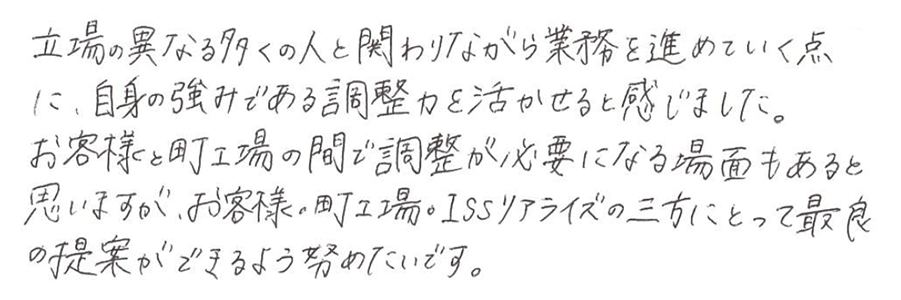 立場の異なる多くの人と関わりながら業務を進めていく点
に、自身の強みである調整力を活かせると感じました。
お客様と町工場の間で調整が必要になる場面もあると
思いますが、お客様・町工場・ISSリアライズの三方にとって最良
の提案ができるよう努めたいです。